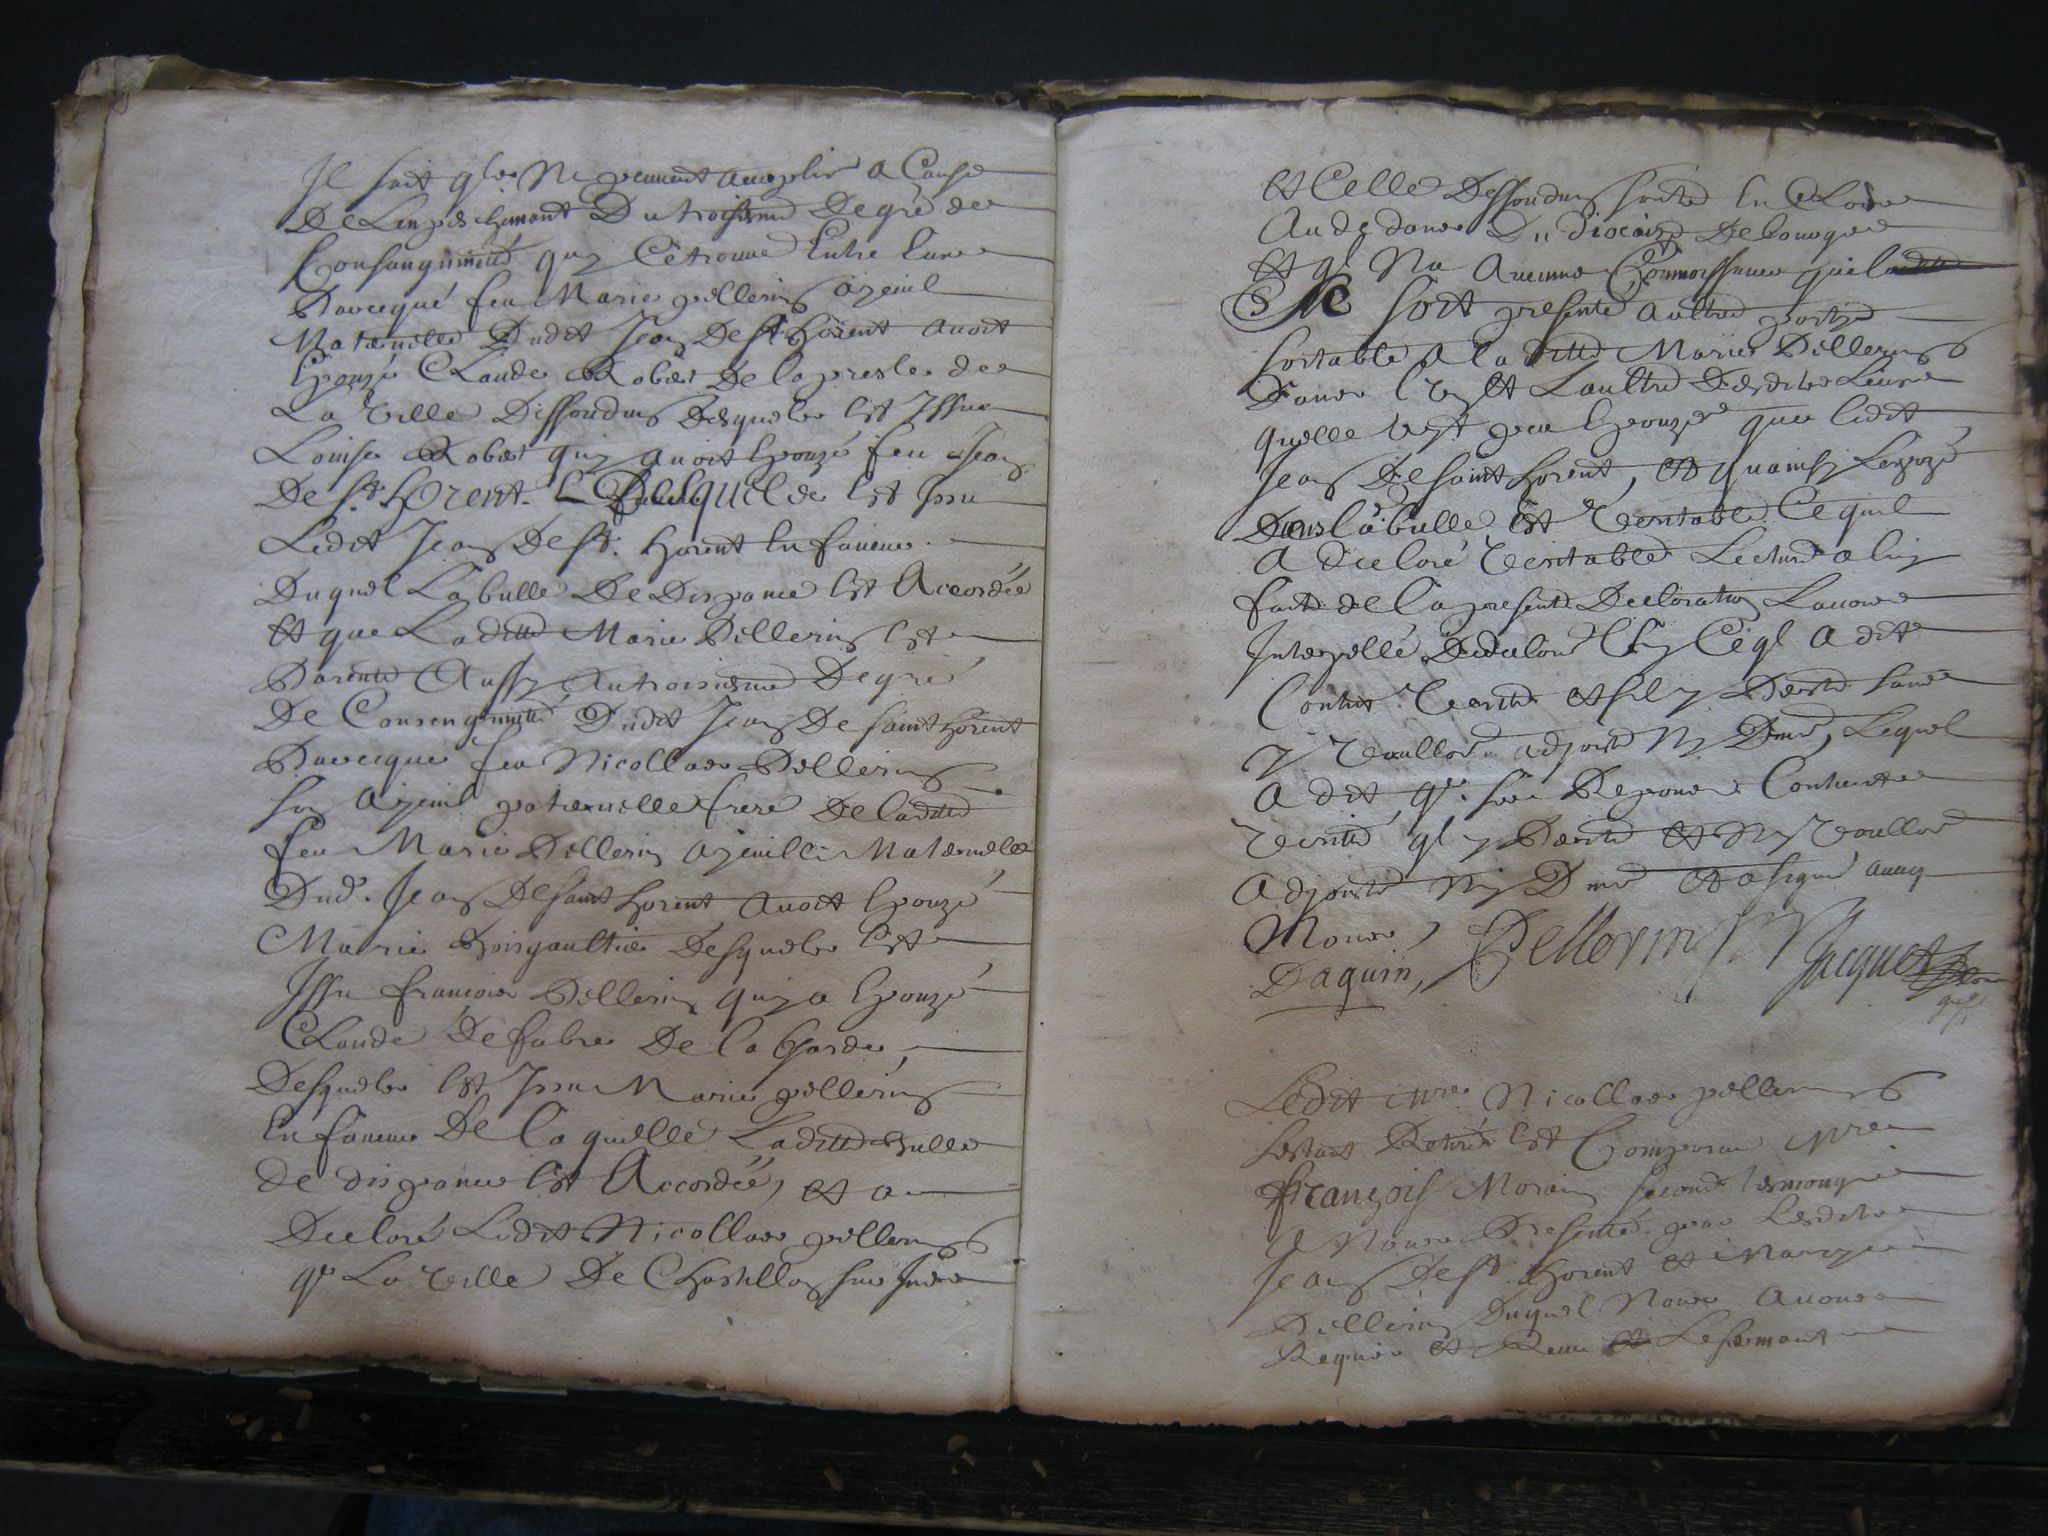 Il sait qlz Ne peuvent acomplir a Cause
De Lempeschemant Du troisiesme Degré de
Consanguinitté quy Cé trouve Entre Eux
Davecqué feu Marie pellerin ayeul
Maternelle Dudit Jean De st. horent avoit
Epouzé Claude Robert de la presle de
La Ville Dissoudun desquels Est Issue
Louise Robert quy avoit Epouzé feu Jean
De st. horent Desquelz Est Issu
Ledit Jean De st. horent En faveur
Duquel La bulle De Dispance Est Accordée
Et que Laditte Marie Pellerin Est
Parente Aussy au troisiesme Degré
De Consenguinitté Dudit Jean De saint horent
Davecque feu Nicollas Pellerin
son ayeul paternelle frere De laditte
feu Marie Pellerin ayeulle Maternelle
Dud. Jean De saint horent avoit Epouzé
Marie Boisgaultier Desquels Est
Issu francois Pellerin quy a Epouzé
Claude De fabre De la Garde,
Desquels Est Issu Marie pellerin
En faveur De la quelle Laditte Bulle
de dispance Est Accordée, et a
Declaré Ledit Nicollas pellerin
qe La Ville De Chastillon sur Indre
et Celle Dissoudun sont En Clos
Au dedans Du diocaise De bourges
Et ql Na Aucune Connoissance quil
Ce soit presenté aultre party
sortable A la ditte Marie Pellerin
Dans L'un Et L'aultre Desdits Lieux
quelle Eust peu Epouzer que ledit
Jean De saint horent, et quainsy L'expozé
Dans la bulle Est Veritable Ce quil
A Declaré Veritable Lecture a luy
faite de la presente Declaration L'avons
Interpellé De declarer Ce ql A dit
Contient Verité et sil y Persiste sans
y Voulloir adjouter Ny Dimr, Lequel
A dit qe. ses Reponces Contient
Veritté ql y Persiste et Ny Voulloir
Adjouster Ny Dimr et a signé avecq
Nous,
Daquin, Pellerin Jacquet
Ledit Mre Nicollas pellerin
sestant Retiré Est Comparu Mre
françois Morin second tesmoing
A Nous Presenté par Lesdits
Jean De st. horent et Marye
Pellerin Duquel Nous Avons
Requis et Receu Le serment